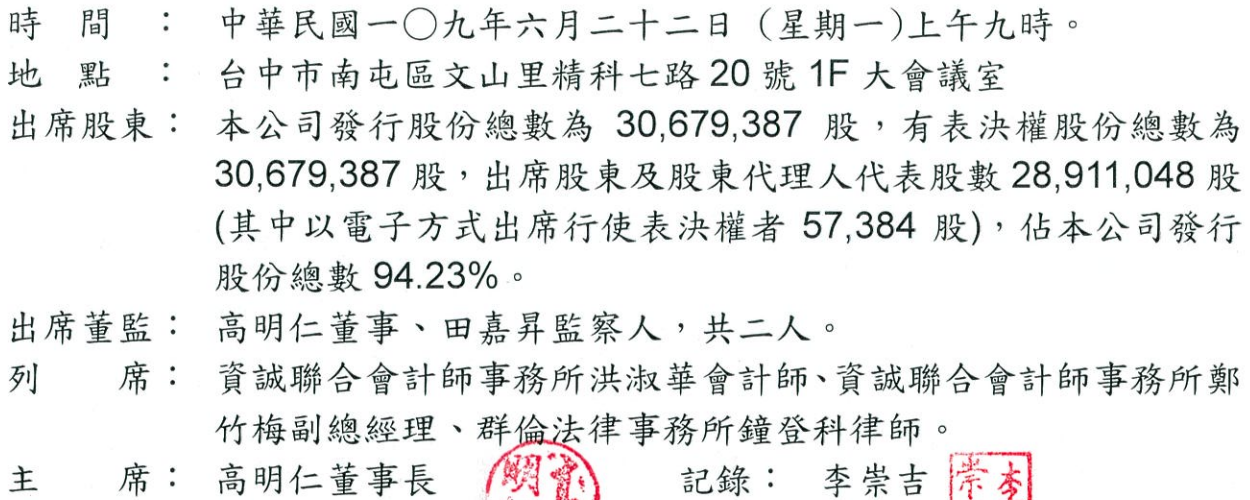 時間：中華民國一○九年六月二十二日 (星期一)上午九時。
地點：台中市南屯區文山里精科七路 20 號 1F 大會議室
出席股東：本公司發行股份總數為 30,679,387 股，有表決權股份總數為
30,679,387 股，出席股東及股東代理人代表股數 28,911,048 股
(其中以電子方式出席行使表決權者 57,384 股)，佔本公司發行
股份總數 94.23%。
出席董監：高明仁董事、田嘉昇監察人，共二人。
列席：資誠聯合會計師事務所洪淑華會計師、資誠聯合會計師事務所鄭
竹梅副總經理、群倫法律事務所鐘登科律師。
主席：高明仁董事長 記錄：李崇吉